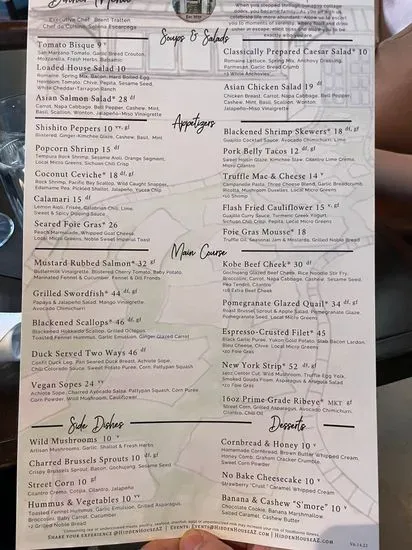 Dinner Menu
Executive Chef Brent Tratten
Chef de Cuisine Selena Escarcega
Est. 1929
When you stepped through our
gates, you became family
celebrate life more abundant. Allow us to assist
you to moments of serenity
Soups & Salads
Tomato Bisque 9 v
San Marzano Tomato, Garlic Bread Crouton,
Mozzarella, Fresh Herbs, Balsamic
Loaded House Salad 10
Romaine, Spring Mix, Bacon, Hard Boiled Egg,
Heirloom Tomato, Chive, Pepita, Sesame Seed,
White Cheddar-Tarragon Ranch
Asian Salmon Salad* 28 df
Carrot, Napa Cabbage, Bell Pepper, Cashew, Mint,
Basil, Scallion, Wonton, Jalapeño-Miso Vinaigrette
Classically Prepared Caesar Salad* 10
Romaine Lettuce, Spring Mix, Anchovy Dressing,
Parmesan, Garlic Bread Crumb
+3 White Anchovies
Asian Chicken Salad 19 df
Chicken Breast, Carrot, Napa Cabbage, Bell Pepper,
Cashew, Mint, Basil, Scallion, Wonton,
Jalapeño-Miso Vinaigrette
Appetizers
Shishito Peppers 10 vv, gf
Blistered, Ginger-Kimchee Glaze, Cashew, Basil, Mint
Popcorn Shrimp 15 df
Tempura Rock Shrimp, Sesame Aioli, Orange Segment,
Local Micro Greens, Sichuan Chili Crisp
Coconut Ceviche* 18 df, gf
Rock Shrimp, Pacific Bay Scallop, Wild Caught Snapper,
Edamame Pea, Pickled Shallot, Jalapeño, Yucca Chip
Calamari 15 df
Lemon Aioli, Frisée, Calabrian Chili, Lime,
Sweet & Spicy Dipping Sauce
Seared Foie Gras* 26
Peach Marmalade, Whipped Goat Cheese,
Local Micro Greens, Noble Sweet Imperial Toast
Blackened Shrimp Skewers* 18 df, gf
Guajillo Cocktail Sauce, Avocado Chimichurri, Lime
Pork Belly Tacos 12 df, gf
Sweet Hoisin Glaze, Kimchee Slaw, Cilantro Lime Crema,
Micro Cilantro
Truffle Mac & Cheese 14 v
Campanelle Pasta, Three Cheese Blend, Garlic Breadcrumb,
Ricotta, Mushroom Duxelle, Local Micro Greens
+10 Shrimp
Flash Fried Cauliflower 15 v, gf
Guajillo Curry Sauce, Turmeric Greek Yogurt,
Sichuan Chili Crisp, Pepita, Local Micro Greens
Foie Gras Mousse* 18
Truffle Oil, Seasonal Jam & Mostarda, Grilled Noble Bread
Main Course
Mustard Rubbed Salmon* 32 gf
Buttermilk Vinaigrette, Blistered Cherry Tomato, Baby Potato,
Marinated Fennel & Cucumber, Fennel & Dill Fronds
Grilled Swordfish* 44 df, gf
Papaya & Jalapeño Salad, Mango Vinaigrette,
Avocado Chimichurri
Blackened Scallops* 46 df
Blackened Hokkaido Scallop, Grilled Octopus,
Toasted Fennel Hummus, Garlic Emulsion, Ginger Glazed Carrot
Duck Served Two Ways 46 df
Confit Duck Leg, Pan Seared Duck Breast, Achiote Sope,
Chili Colorado Sauce, Sweet Potato Puree, Corn, Pattypan Squash
Vegan Sopes 24 vv
Achiote Sope, Charred Avocado Salsa, Pattypan Squash, Corn Puree,
Corn Powder, Wild Mushroom, Cauliflower
Kobe Beef Cheek* 30 df
Gochujang Glazed Beef Cheek, Rice Noodle Stir Fry,
Broccolini, Carrot, Napa Cabbage, Cashew, Sesame Seed,
Pea Tendril, Cilantro
+28 Extra Beef Cheek
Pomegranate Glazed Quail* 34 df, gf
Roast Brussel Sprout & Apple Salad, Pomegranate Glaze,
Pomegranate Seed, Local Micro Greens
Espresso-Crusted Filet* 45
Black Garlic Puree, Yukon Gold Potato, Slab Bacon Lardon,
Bleu Cheese, Chive, Local Micro Greens
+20 Foie Gras
New York Strip* 52 df, gf
14oz Center Cut, Wild Mushroom, Truffle Egg Yolk,
Smoked Gouda Foam, Asparagus & Arugula Salad
+20 Foie Gras
16oz Prime-Grade Ribeye* MKT gf
Street Corn, Grilled Asparagus, Avocado Chimichurri,
Cilantro, Chili Oil
Side Dishes
Wild Mushrooms 10 v
Artisan Mushrooms, Garlic, Shallot & Fresh Herbs
Charred Brussels Sprouts 10 df
Crispy Brussels Sprout, Bacon, Gochujang, Sesame Seed
Street Corn 10 gf
Cilantro Crema, Cotija, Cilantro, Jalapeño
Hummus & Vegetables 10 vv
Toasted Fennel Hummus, Garlic Emulsion, Grilled Asparagus,
Broccolini, Baby Carrot, Cucumber
+2 Grilled Noble Bread
Desserts
Cornbread & Honey 10 v
Homemade Cornbread, Brown Butter Whipped Cream,
Honey Comb, Graham Cracker Crumble,
Sweet Corn Powder
No Bake Cheesecake 10 v
Strawberry "Crust," Caramel Whipped Cream
Banana & Cashew "S'more" 10 v
Chocolate Cookie, Banana Marshmallow,
Salted Caramel, Cashew Butter
Consuming raw or undercooked meats, poultry, seafood, shellfish, or eggs may increase your risk of foodborne illness
Share your experience @HiddenHouseAZ | Events: Events@HiddenHouseAZ.com | HiddenHouseAZ.com
V6.14.22